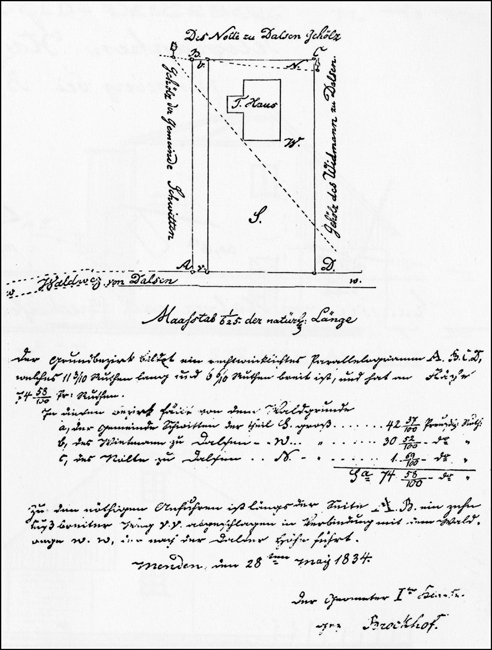 Des Nolte zu Dalsen Gehölz
B. v. N. C.
Gehölz der Gemeinde Schwitten
T. Haus
W.
Gehölz des Widmann zu Dalsen
S.
A. v. D.
w. Waldweg von Dalsen w.
Maasstab 1/625 der natürl: Länge
Der Grundbezirk bildet ein rechtwinklichtes Parallelogramm A. B. C. D,
welches 11 3/10 Ruthen lang und 6 6/10 Ruthen breit ist, und hat an Fläche
74 58/100 Pr: Ruthen.
In diesem Bezirk fallen von dem Waldgrunde
a, der Gemeinde Schwitten der theil S. groß 42 37/100 Preußis Ruth:
b, des Wietmann zu Dalsen - - W. " 30 52/100 - do "
c, des Nolte zu Dalsen N. - " 1 69/100 - do "
Sa 74 58/100 - do "
Zu dem nöthigen Anfuhren ist längs der Seite A. B. ein zehn
Fuß breiter Weg v. v. abgeschlagen in Verbindung mit dem Wald-
wege w. w, der nach der Dalsen führt.
Menden, den 28ten May 1834.
Der Geometer Ir
gez Brockhof.